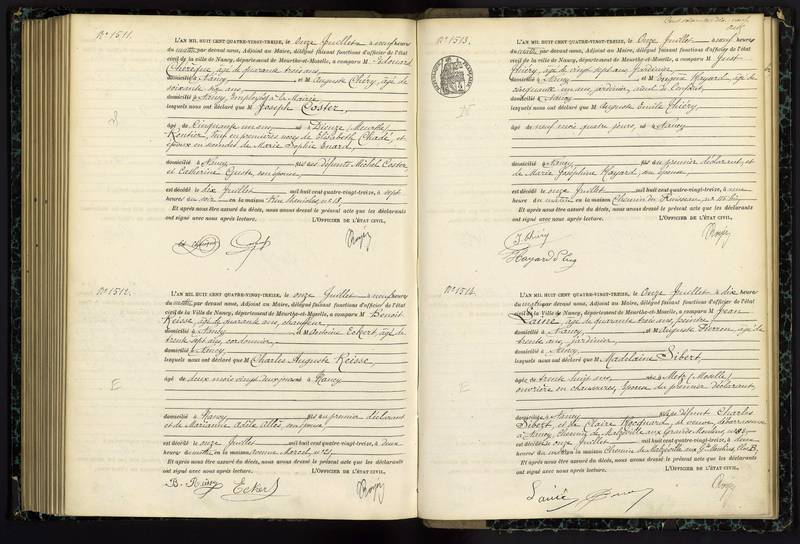 N° 1511.
L'AN MIL HUIT CENT QUATRE-VINGT-TREIZE, le onze Juillet à neuf heures
du matin par devant nous, Adjoint au Maire, délégué faisant fonctions d'officier de l'état
civil de la ville de Nancy, département de Meurthe-et-Moselle, a comparu M Edouard
âgé de quarante trois ans,
domicilié à Nancy et M Auguste Chéry, âgé de
soixante six ans,
domicilié à Nancy, employés à la Mairie
lesquels nous ont déclaré que M Joseph Coster,
âgé de Cinquante un ans, né à Dieuze (Meurthe)
Rentier, Veuf en premières noces de Elisabeth et
époux en secondes de Marie Sophie Evrard,
domicilié à Nancy fils des défunts Michel Coster
et Catherine son épouse,
est décédé le dix Juillet mil huit cent quatre-vingt-treize, à sept
heures du soir en la maison Rue n° 18,
Et après nous être assuré du décès, nous avons dressé le présent acte que les déclarants
ont signé avec nous après lecture. L'OFFICIER DE L'ÉTAT CIVIL,
N° 1512.
L'AN MIL HUIT CENT QUATRE-VINGT-TREIZE, le onze Juillet à neuf heures
du matin par devant nous, Adjoint au Maire, délégué faisant fonctions d'officier de l'état
civil de la Ville de Nancy, département de Meurthe-et-Moselle, a comparu M Benoit
Reisse, âgé de quarante ans, chauffeur
domicilié à Nancy et M Antoine Eckert, âgé de
trente sept ans, cordonnier,
domicilié à Nancy
lesquels nous ont déclaré que M Charles Auguste Reisse,
âgé de deux mois vingt deux jours né à Nancy
domicilié à Nancy fils du premier déclarant
et de Marianne Adèle son épouse
est décédé le onze Juillet mil huit cent quatre-vingt-treize, à deux
heures du matin en la maison
Et après nous être assuré du décès, nous avons dressé le présent acte que les déclarants
ont signé avec nous après lecture. L'OFFICIER DE L'ÉTAT CIVIL,
E
Eckert
N° 1513.
L'AN MIL HUIT CENT QUATRE-VINGT-TREIZE, le Onze Juillet à neuf heures
du matin par devant nous, Adjoint au Maire, délégué faisant fonctions d'officier de l'état
civil de la ville de Nancy, département de Meurthe-et-Moselle, a comparu M Just
Thiéry, âgé de vingt sept ans, jardinier
domicilié à Nancy et M Hayard, âgé de
cinquante un ans, jardinier, aïeul de l'enfant,
domicilié à Nancy
lesquels nous ont déclaré que M Auguste Emile Thiéry,
âgé de neuf mois quatre jours, né à Nancy
domicilié à Nancy fils du premier déclarant, et
de Marie Joséphine Hayard, son épouse,
est décédé le onze Juillet mil huit cent quatre-vingt-treize, à une
heure du matin en la maison Chemin du Ruisseau,
Et après nous être assuré du décès, nous avons dressé le présent acte que les déclarants
ont signé avec nous après lecture. L'OFFICIER DE L'ÉTAT CIVIL,
J. Thiéry
Hayard
N° 1514.
L'AN MIL HUIT CENT QUATRE-VINGT-TREIZE, le Onze Juillet à dix heures
du matin par devant nous, Adjoint au Maire, délégué faisant fonctions d'officier de l'état
civil de la Ville de Nancy, département de Meurthe-et-Moselle, a comparu M Jean
Lainé, âgé de quarante trois ans, peintre
domicilié à Nancy et M Auguste Pierron, âgé de
trente ans, jardinier,
domicilié à Nancy
lesquels nous ont déclaré que M Madelaine Sibert
âgée de trente huit ans, née à Metz (Moselle)
ouvrière en chaussures, épouse du premier déclarant,
domiciliée à Nancy fille de défunt Charles
Sibert, et de Claire sa veuve,
à Nancy, Chemin de Malzéville aux Grands Moulins,
est décédée le onze Juillet mil huit cent quatre-vingt-treize, à deux
heures du matin en la maison Chemin de Malzéville aux Gds Moulins,
Et après nous être assuré du décès, nous avons dressé le présent acte que les déclarants
ont signé avec nous après lecture. L'OFFICIER DE L'ÉTAT CIVIL,
E
Lainé